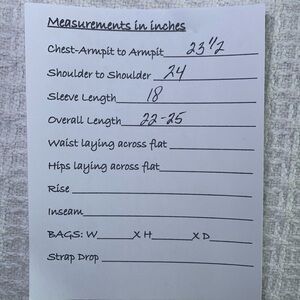 Measurements in inches
Chest-Armpit to Armpit 23 1/2
Shoulder to Shoulder 24
Sleeve Length 18
Overall Length 22-25
Waist laying across flat
Hips laying across flat
Rise
Inseam
BAGS: W_____X H_____X D_____
Strap Drop